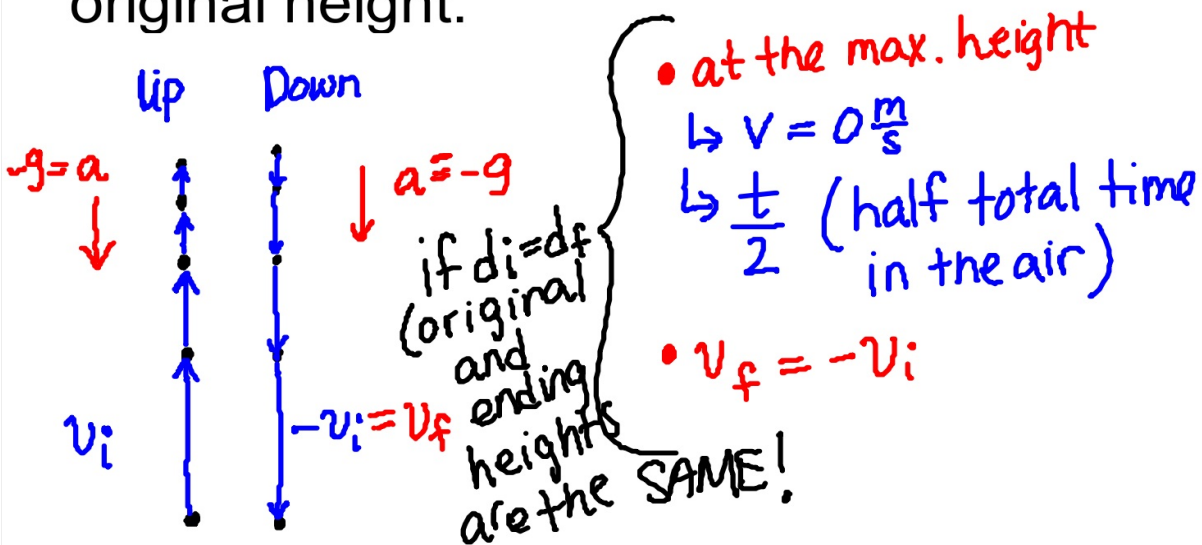 original height.
Up Down
-g=a
a=-g
if di=df
(original
and
ending
heights
are the SAME!
vi
-vi=vf
• at the max. height
↳ v = 0 m/s
↳ t/2 (half total time
in the air)
• vf = -vi